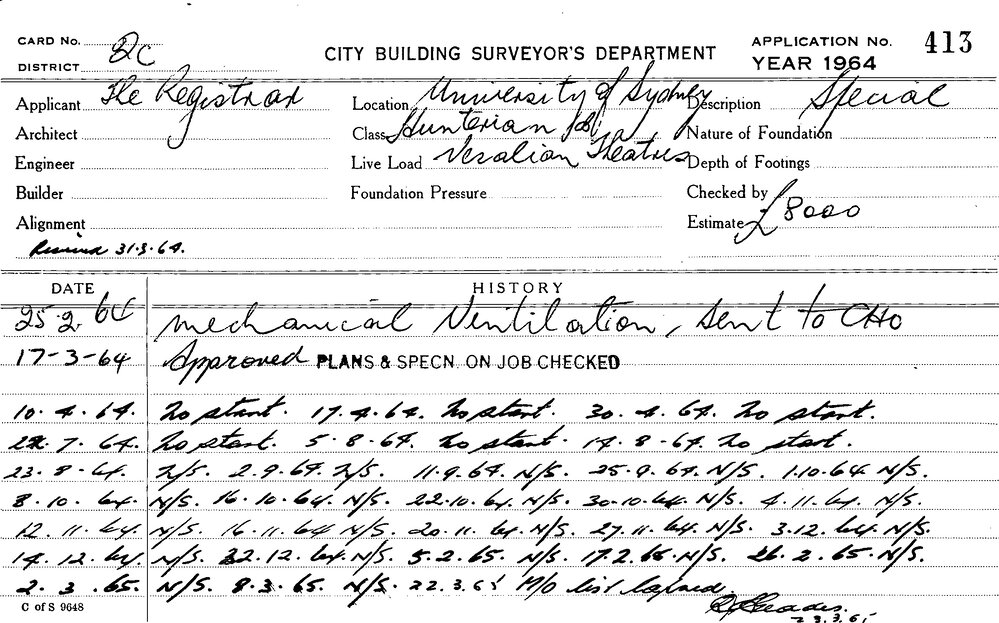 CARD No. CITY BUILDING SURVEYOR'S DEPARTMENT APPLICATION No. 413
DISTRICT 2c YEAR 1964
Applicant The Registrar Location University of Sydney Description Special
Architect Class Hunterian Nature of Foundation
Engineer Live Load Vesalian Theatres Depth of Footings
Builder Foundation Pressure Checked by
Alignment Estimate £8000
31.3.64.
DATE HISTORY
25.2.64 Mechanical Ventilation, Sent to CHO
17-3-64 Approved PLANS & SPECN. ON JOB CHECKED
10.4.64. No start. 17.4.64. No start. 30.4.64. No start.
7.64. No start. 5-8-64. No start. 14.8-64. No start.
23.8-64. N/S. 2.9.64. N/S. 11.9.64. N/S. 25.9.64. N/S. 1.10.64 N/S.
8.10.64. N/S. 16.10.64. N/S. 22.10.64. N/S. 30.10.64. N/S. 4.11.64. N/S.
12.11.64. N/S. 16.11.64 N/S. 20.11.64. N/S. 27.11.64. N/S. 3.12.64. N/S.
14.12.64. N/S. 22.12.64. N/S. 5.2.65. N/S. 17.2.65. N/S. 26.2.65. N/S.
2.3.65. N/S. 8.3.65. N/S. 22.3.65 list
C of S 9648
23.3.65